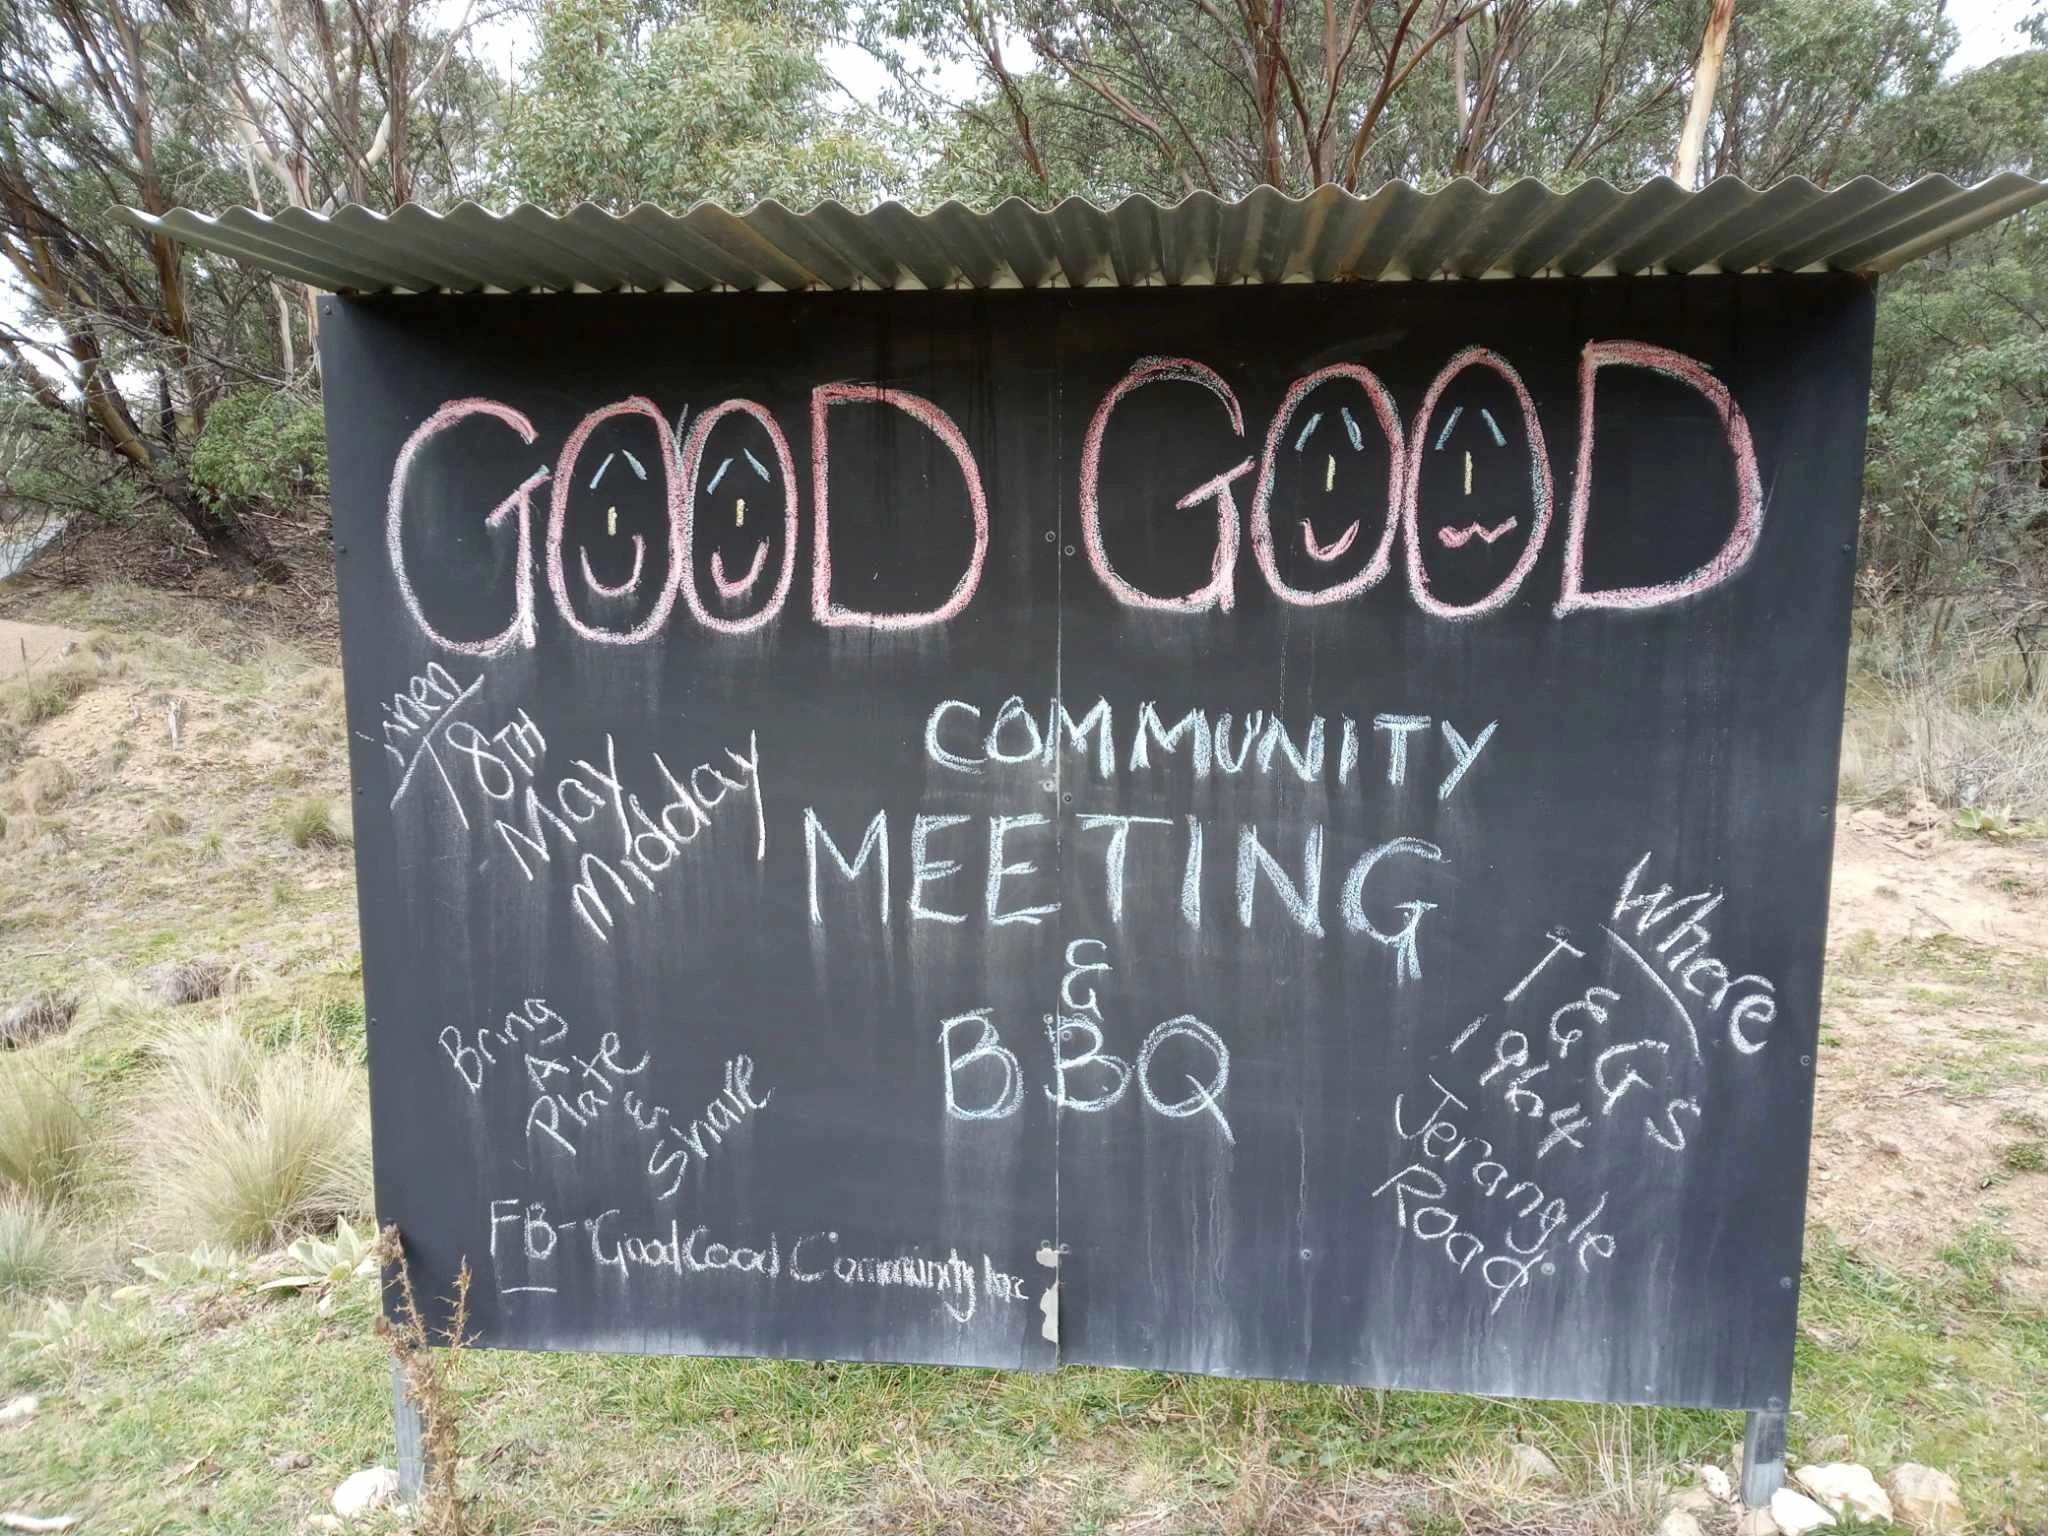 GOOD GOOD
When
18TH
May
Midday
COMMUNITY
MEETING
&
BBQ
Where
T & G's
1964
Jerangle
Road
Bring
A
Plate
&
Share
FB- GoodGood Community Inc